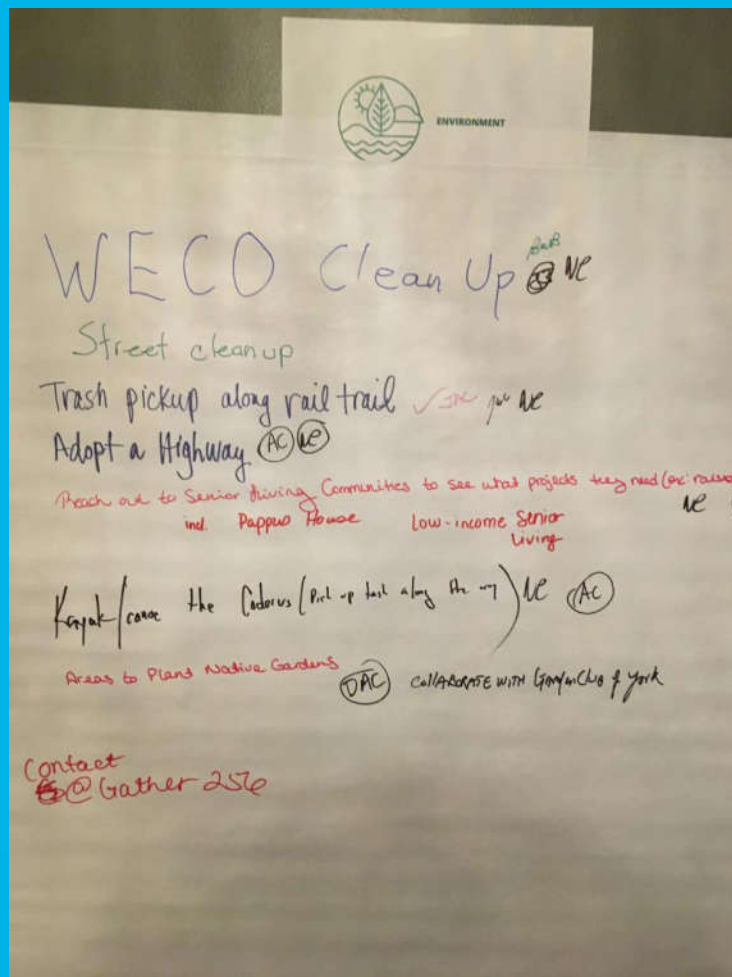 ENVIRONMENT
WECO Clean Up NE
Street cleanup
Trash pickup along rail trail NE
Adopt a Highway AC NE
Reach out to Senior Living Communities to see what projects they need (ex: raised
incl. Pappus House Low-income Senior Living NE
Kayak/canoe the Codorus (Pick up trash along the way) NE AC
Areas to Plant Native Gardens DAC COLLABORATE WITH Garden Club of York
Contact
@Gather 256